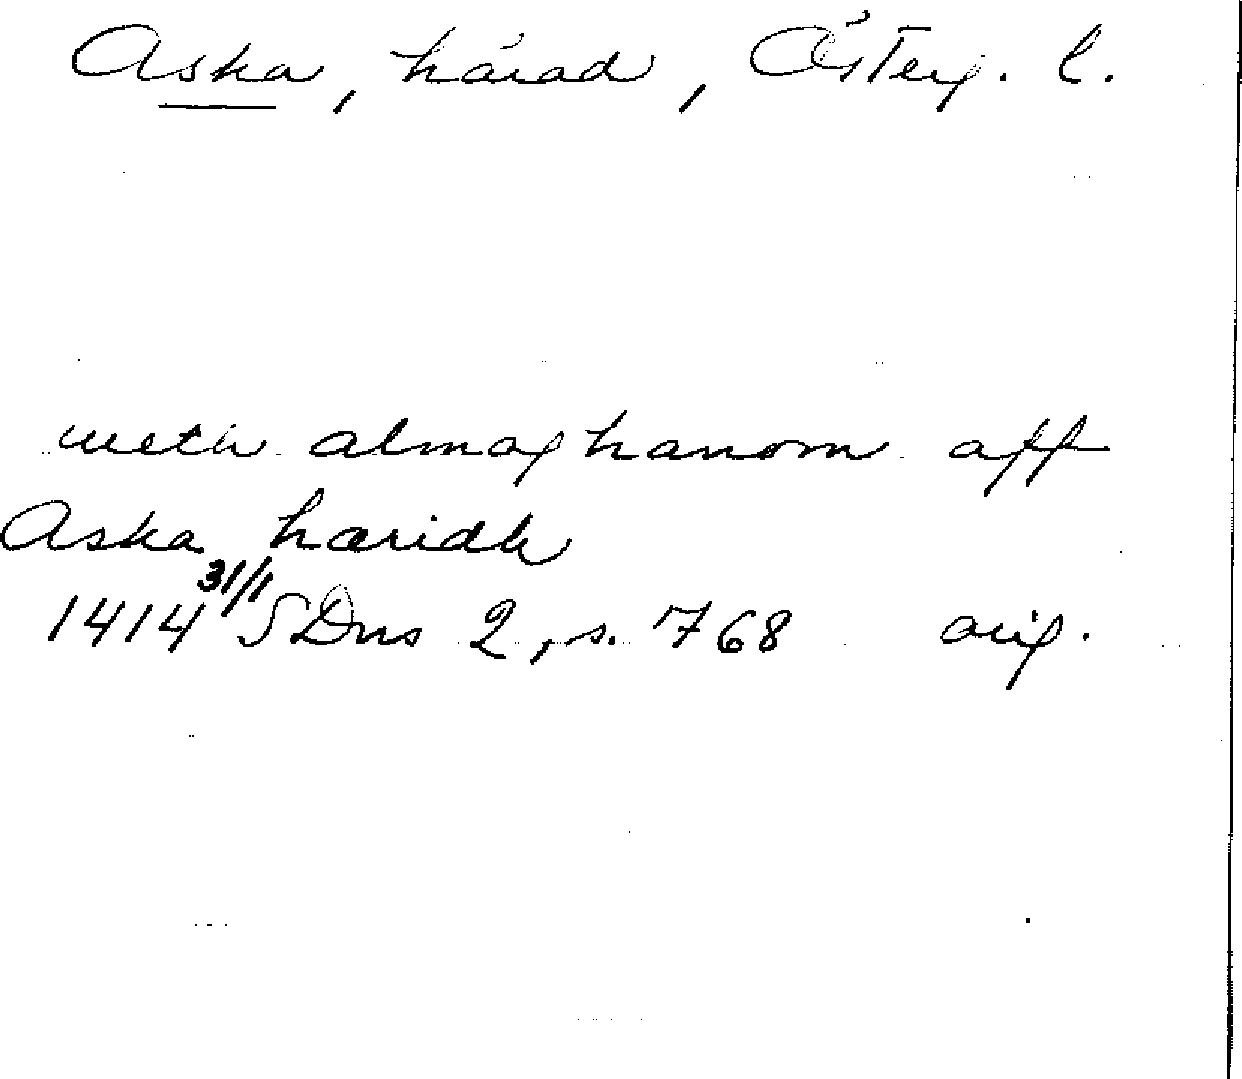 Aska, härad, Österg. l.
meth almoghanom aff
Aska hæridh
1414 31/1 SDns 2, s. 768 orig.